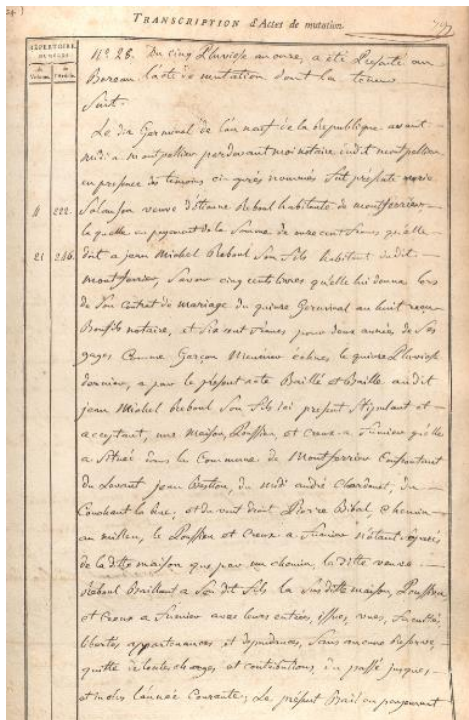 TRANSCRIPTION d'Actes de mutation.
RÉPERTOIRE
N.º 28. Du cinq Pluviose an onze, a été Présenté au
Bureau l'acte de mutation dont la teneur
Suit.
Le dix Germinal de l'an neuf de la République avant
midi a montpellier pardevant moi notaire dudit montpellier
en presence des temoins ci après nommés fut presente marie
11 222. veuve d'Etienne Reboul habitante de montferrier
laquelle en payement de la Somme de onze cent francs qu'elle
21 246. doit a jean Michel Reboul Son fils habitant dudit
montferrier, Savoir cinq cent livres qu'elle lui donna lors
de Son contrat de mariage du quinze Germinal an huit reçu
Bonfils notaire, et Six cent francs pour deux années de Ses
gages Comme Garçon Meunier échues le quinze Pluviose
dernier, a par le présent acte Baillé et Baille audit
jean Michel Reboul Son fils ici present Stipulant et
acceptant, une maison, Poussieu, et Creux a fumier qu'elle
a Située dans la Commune de Montferrier Confrontant
du Levant jean Weston, du midi andré Chardonet, du
Couchant la Rue, et du vent droit Pierre Bibal, chemin
au milieu, le Poussieu et Creux a fumier n'étant Séparés
de la ditte maison que par un chemin, la ditte veuve
Reboul Baillant a Son dit fils la Sus ditte maison, Poussieu
et Creux a fumier avec leurs entrées, issues, vues, facultés,
libertés appartenances et dépendances, Sans aucune Reserve,
quitte de toutes charges et contributions, du passé jusques
et inclus l'année Courante; Le présent Bail en payement